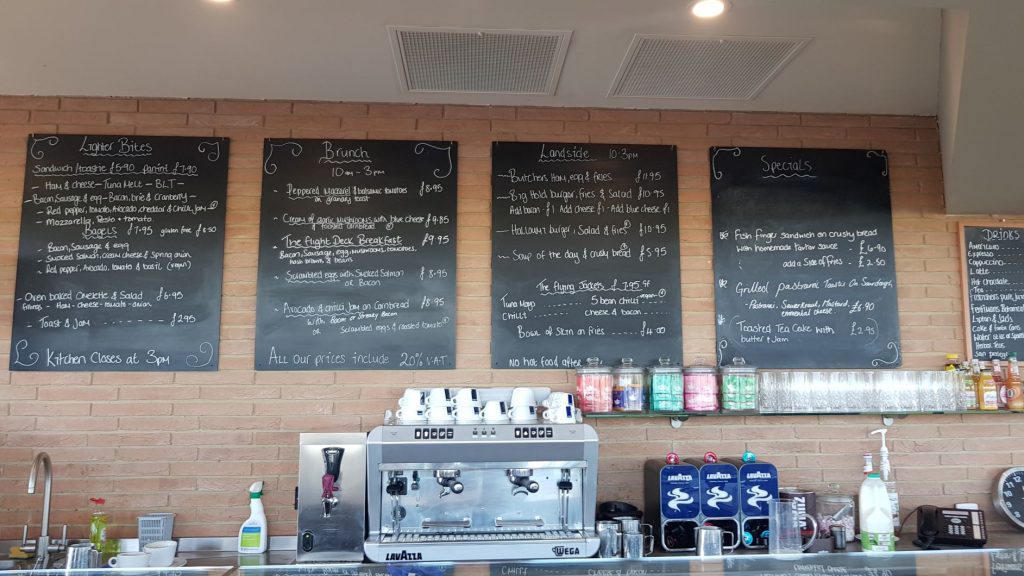 Lighter Bites
Sandwich/toastie £5.90 panini £7.90
- Ham & cheese - Tuna Melt - BLT -
- Bacon, Sausage & egg - Bacon, brie & Cranberry -
- Red pepper, tomato, Avocado, cheddar & Chilli Jam
- Mozzarella, Pesto + tomato
Bagels £7.95 gluten free £8.50
- Bacon, Sausage & egg
- Smoked Salmon, cream cheese & Spring onion
- Red pepper, Avocado, tomato & basil (vegan)
- Oven baked Omelette & Salad £6.95
fillings - Ham - cheese - tomato - onion
- Toast & Jam £2.95
Kitchen Closes at 3pm
Brunch
10am - 3pm
- Peppered Mackerel & balsamic tomatoes £8.95
on granary toast
- Cream of Mushrooms with blue cheese £9.85
- The Flight Deck Breakfast £9.95
Bacon, Sausage, egg, Mushrooms, tomatoes,
hash brown & beans
- Scrambled eggs with Smoked Salmon £8.95
or Bacon
Avocado & chilli Jam on Cornbread £8.95
with Bacon
or
Scrambled eggs & roasted tomato
All our prices include 20% V.A.T.
Landside 10-3pm
- Butchers Ham, egg & fries £11.95
- Big Hold burger, fries & Salad £10.95
Add bacon - £1 Add cheese £1 - Add blue cheese £1
- Halloumi burger, Salad & fries £10.95
- Soup of the day & crusty bread £5.95
The Flying Jackets £7.95
Tuna Mayo 5 bean chilli
Chilli cheese & bacon
Bowl of Skin on fries £4.00
No hot food after
Specials
Fish finger Sandwich on crusty bread
with homemade tartar sauce £6.90
add a Side of fries - £2.50
Grilled pastrami
- Pastrami, Sauerkraut, Mustard, £6.90
emmental cheese
Toasted Tea Cake with £2.95
butter & Jam
Drinks
Americano
Espresso
Cappuccino
Latte
Hot Chocolate
Tea
LAVAZZA
WEGA
LAVAZZA
LAVAZZA
LAVAZZA